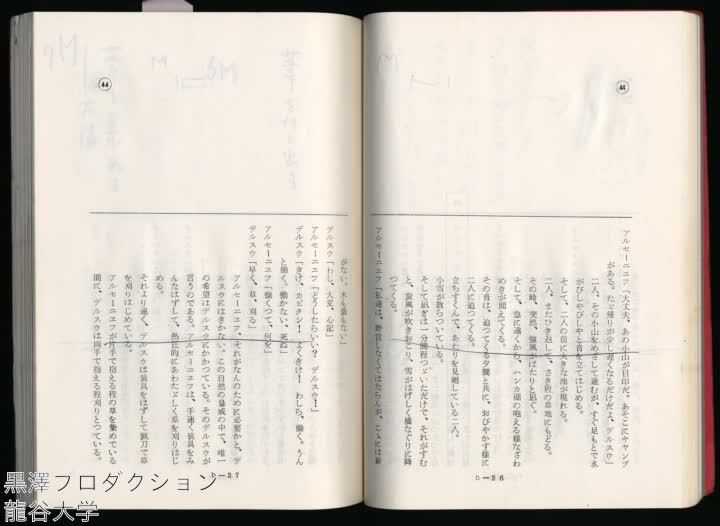 ㊹
アルセーニエフ「大丈夫、あの小山が目印だ。あそこにキャンプ
がある。たゞ帰りが少し遅くなるだけだよ、デルスウ」
二人、その小山をめざして進むが、すぐ足もとで水
がぴしやぴしやと音を立てはじめる。
そして、二人の前に大きな池が現れる。
二人、またひき返して、さき程の草地にもどる。
その時、突然、強風がはたりと凪ぐ。
そして、急に遠くから、ハンカ湖の咆える様なざわ
めきが聞えてくる。
その音は、迫つてくる夕闇と共に、おびやかす様に
二人に迫つてくる。
立ちすくんで、あたりを見廻している二人。
小雪が散らついている。
そして凪ぎは一分間程つゞいただけで、それがすむ
と、旋風が吹きおこり、雪がはげしく横なぐりに降
つてくる。
アルセーニエフ「私達は、野宿しなくてはならんが、こゝには薪
b—26
㊹
がない。木も薮もない」
デルスウ「わし、大変、心配」
アルセーニエフ「どうしたらいい？　デルスウ！」
デルスウ「きけ、カピタン！　よくきけ！　わしら、働く。うん
と働く。働かない、死ぬ」
アルセーニエフ「働くつて、何を」
デルスウ「早く、草、刈る」
アルセーニエフ、それがなんのために必要かと、デ
ルスウにはきかない。この自然の暴威の中で、唯一
の希望はデルスウにかかつている。そのデルスウが
言うのである。アルセーニエフは、手速く装具をみ
んなはずして、熱狂的にあわたゞしく草を刈りはじ
める。
それより速く、デルスウは装具をはずして猟刀で草
を刈りはじめている。
アルセーニエフが片手で抱える程の草を集めている
間に、デルスウは両手で抱える程刈りとつている。
b—27
黒澤プロダクション
龍谷大学